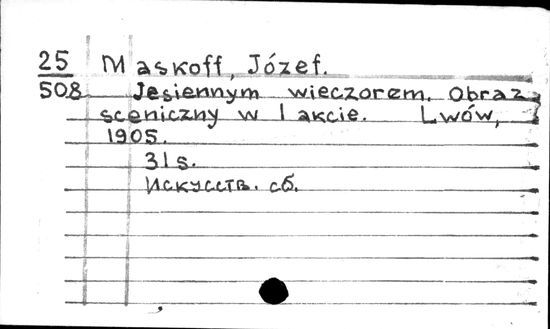 25 Maskoff, Józef.
508 Jesiennym wieczorem. Obraz
sceniczny w 1 akcie. Lwów,
1905.
31 s.
Искусств. сб.